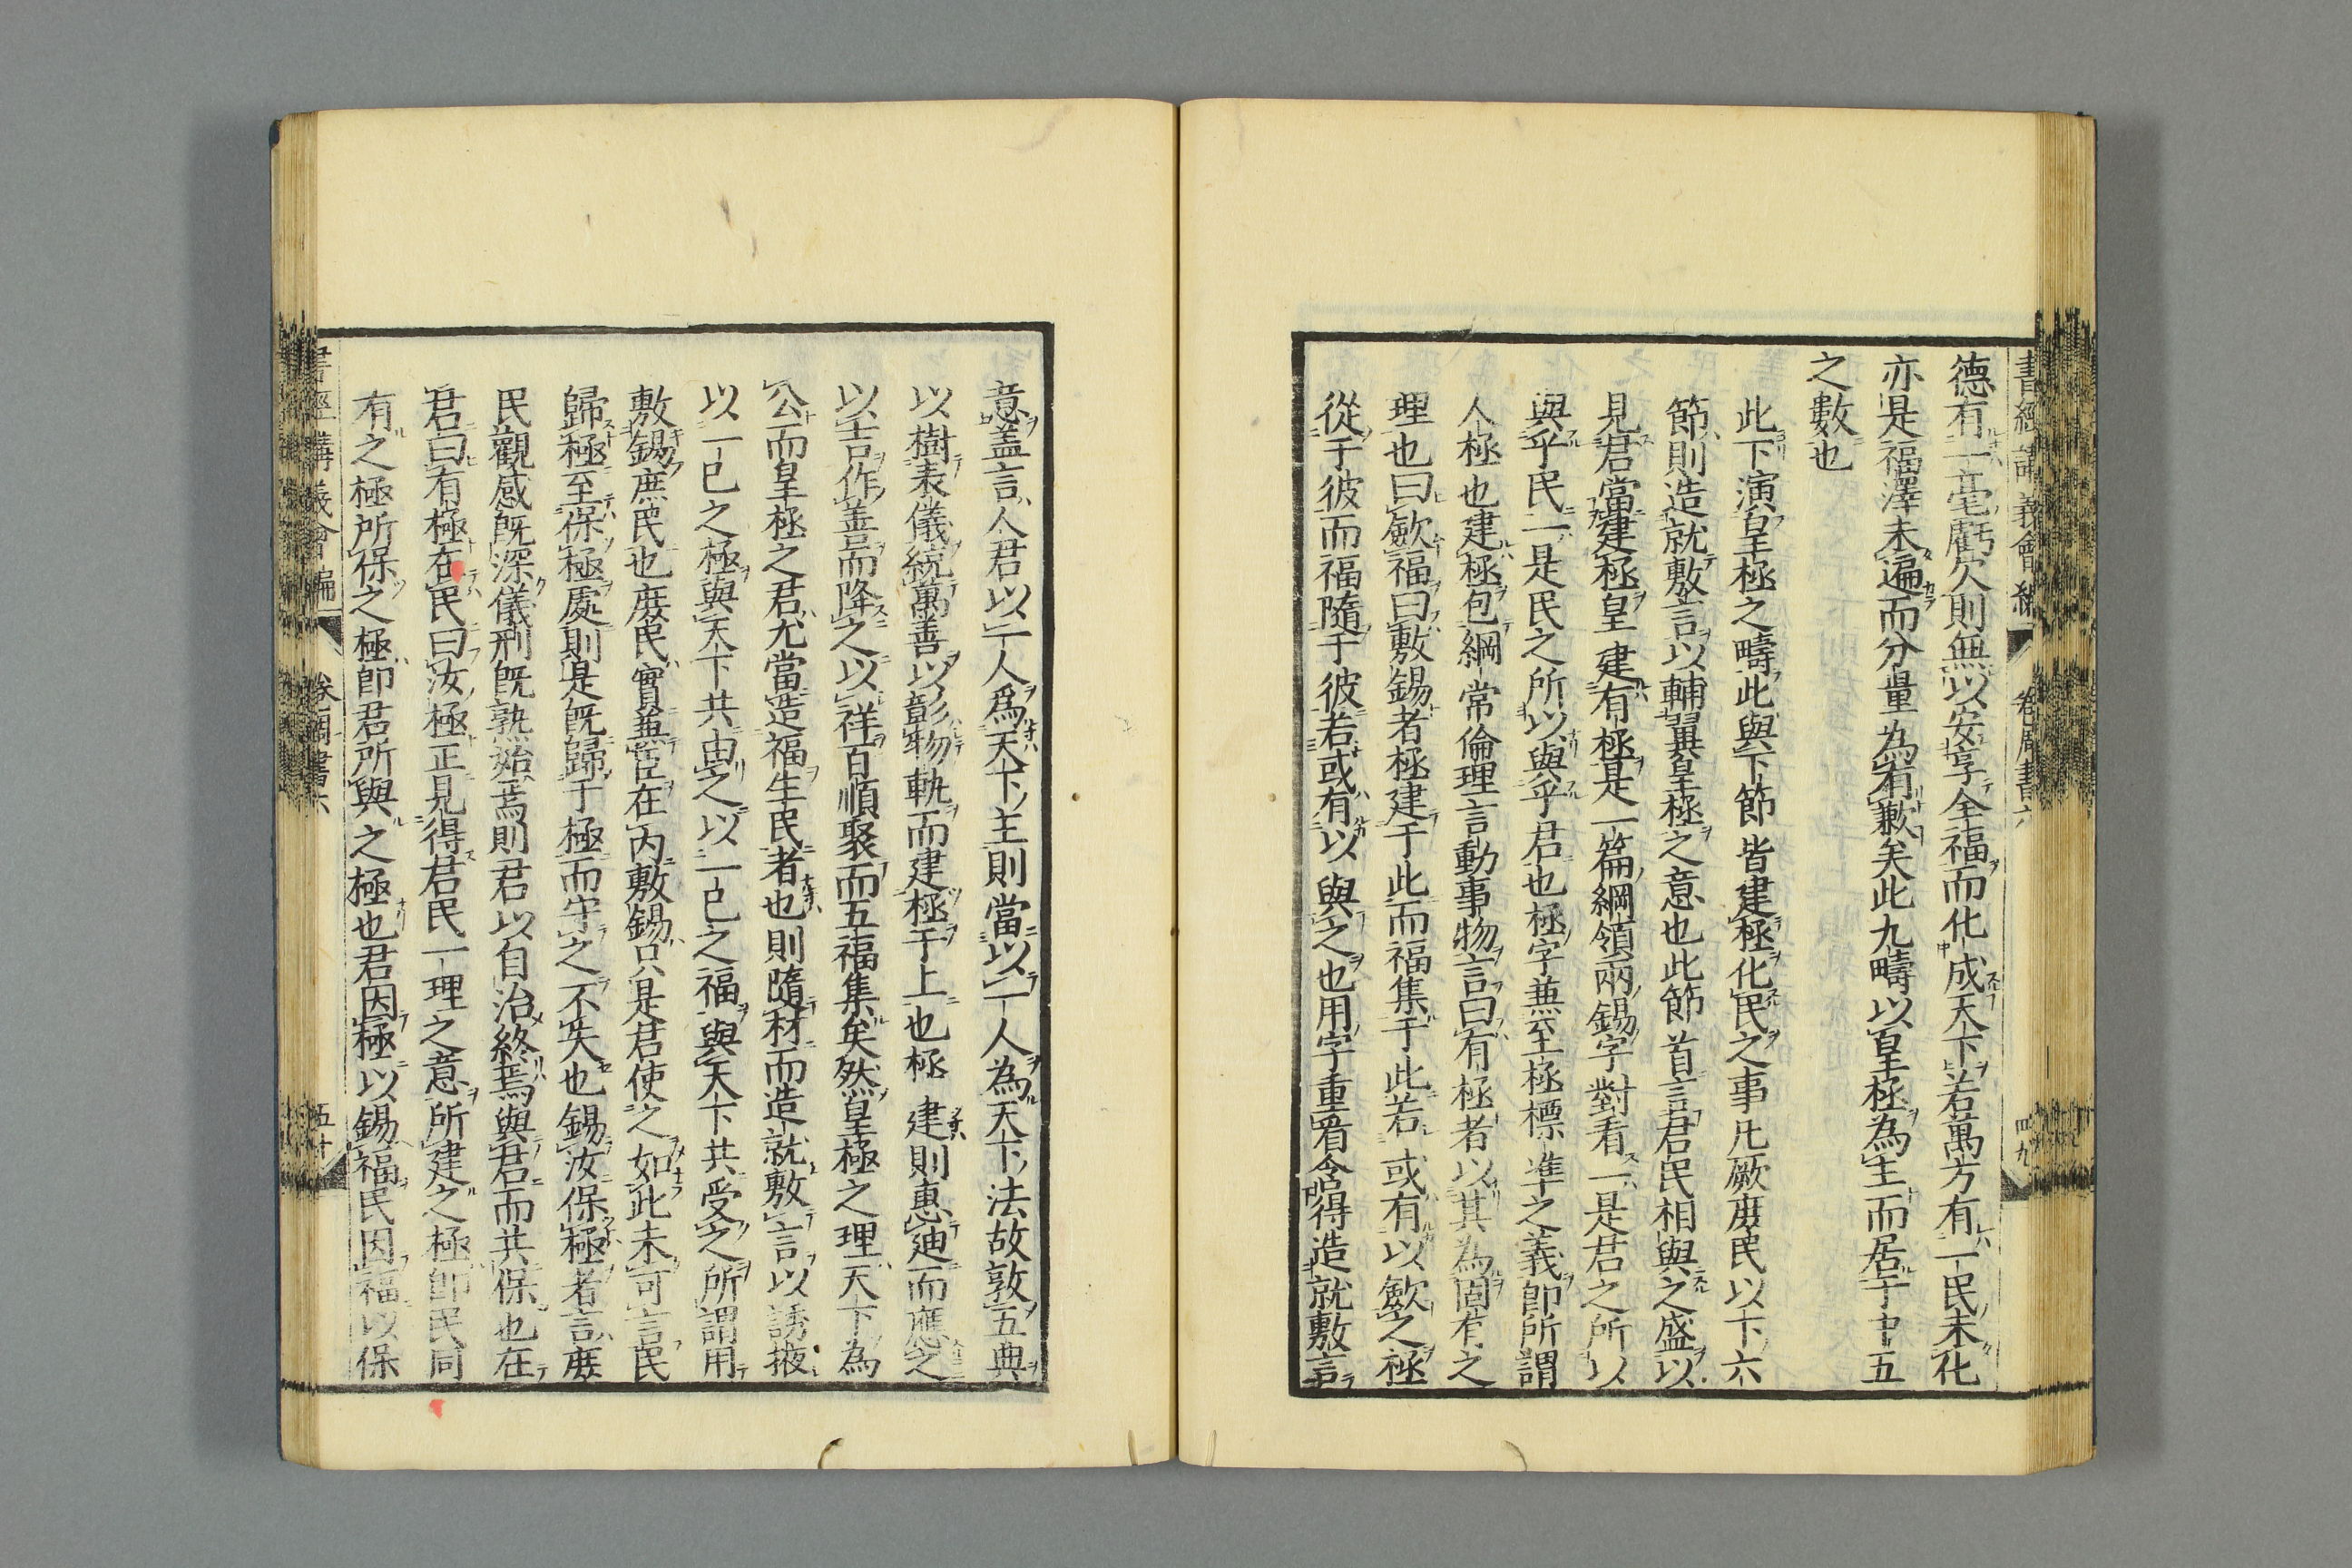 書經講義會編 卷 周書六 四九
德有一毫虧欠則無以安享全福而化成天下若萬方有一民未化
亦是福澤未遍而分量為有歉矣此九疇以皇極為主而居于中五
之數也
此下演皇極之疇此與下節皆建極化民之事凡厥庶民以下六
節則造就敷言以輔翼皇極之意也此節首言君民相與之盛以
見君當建極皇建有極是一篇綱領兩錫字對看一是君之所以
與乎民一是民之所以與乎君也極字兼至極標準之義即所謂
人極也建極包綱常倫理言動事物言曰有極者以其為固有之
理也曰歛福曰敷錫者極建于此而福集于此若或有以歛之極
從于彼而福隨于彼若或有以與之也用字重看含得造就敷言
意蓋言人君以一人爲天下主則當以一人為天下法故敦五典
以樹表儀統萬善以彰物軌而建極于上也極建則惠廸而應之
以吉作善而降之以祥百順聚而五福集矣然皇極之理天下為
公而皇極之君尤當造福生民者也則隨材而造就敷言以誘掖
以一已之極與天下共由之以一已之福與天下共受之所謂用
敷錫庶民也庶民實兼臣在内敷錫只是君使之如此未可言民
歸極至保極處則是既歸于極而守之不失也錫汝保極者言庶
民觀感既深儀刑既孰始焉則君以自治終焉與君而共保也在
君曰有極在民曰汝極正見得君民一理之意所建之極即民同
有之極所保之極即君所與之極也君因極以錫福民因福以保
書經講義會編 卷四周書六 五十